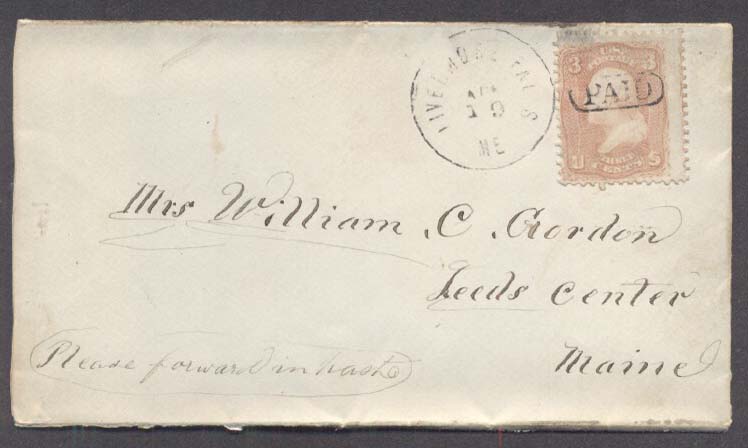 LIVERMORE FALLS
APR
19
ME
3 U.S. 3
PAID
U THREE CENTS S
Mrs William C. Gordon
Leeds Center
Maine
Please forward in haste